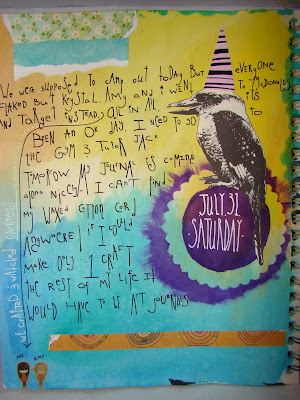 We were supposed to camp out today but everyone
flaked but Krystal. Amy and i went to McDonalds
and Target instead. All in all, its
been an ok day. I need to go to
the gym 3 Tutor Jack
Tomorrow. My journal is coming
along nicely. I cant find
my waxed cotton cord
anywhere! if i could
make only 1 craft
the rest of my life it
would have to be art journals.
JULY 31
SATURDAY
ME
AMY